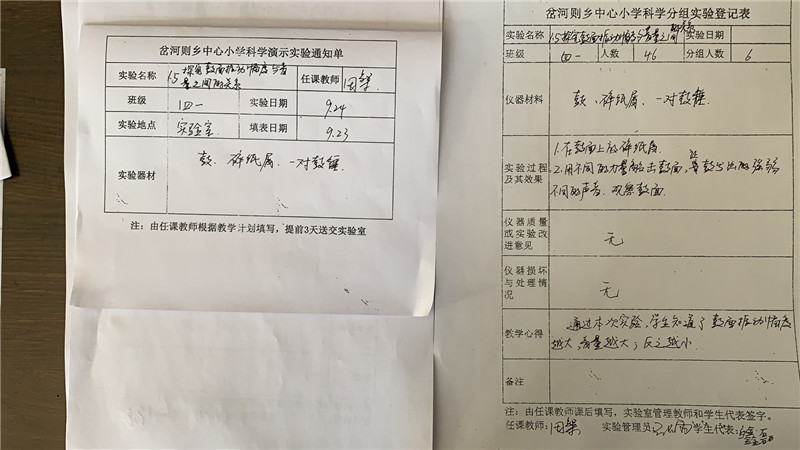 岔河则乡中心小学科学演示实验通知单
实验名称 1.5探究鼓面振动幅度与音量之间的关系 任课教师
班级 四一 实验日期 9.24
实验地点 实验室 填表日期 9.23
实验器材 鼓、碎纸屑、一对鼓锤
注：由任课教师根据教学计划填写，提前3天送交实验室
岔河则乡中心小学科学分组实验登记表
实验名称 1.5探究鼓面振动幅度与音量之间的关系 实验日期
班级 四一 人数 46 分组人数 6
仪器材料 鼓、碎纸屑、一对鼓锤
实验过程及其效果
1.在鼓面上放碎纸屑.
2.用不同的力量敲击鼓面,让鼓发出的强弱
不同的声音.观察鼓面.
仪器质量或实验改进意见 无
仪器损坏与处理情况 无
教学心得 通过本次实验,学生知道了鼓面振动幅度
越大,音量越大;反之越小.
备注
注：由任课教师课后填写，实验室管理教师和学生代表签字。
任课教师: 实验管理员: 学生代表: